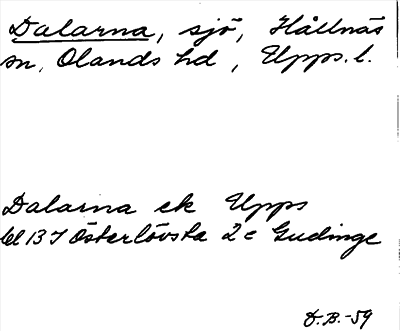 Dalarna, sjö, Hållnäs
sn, Olands hd, Upps. l.
Dalarna ek Upps
bl 13 I Österlövsta 2 c Gudinge
D.B.-59